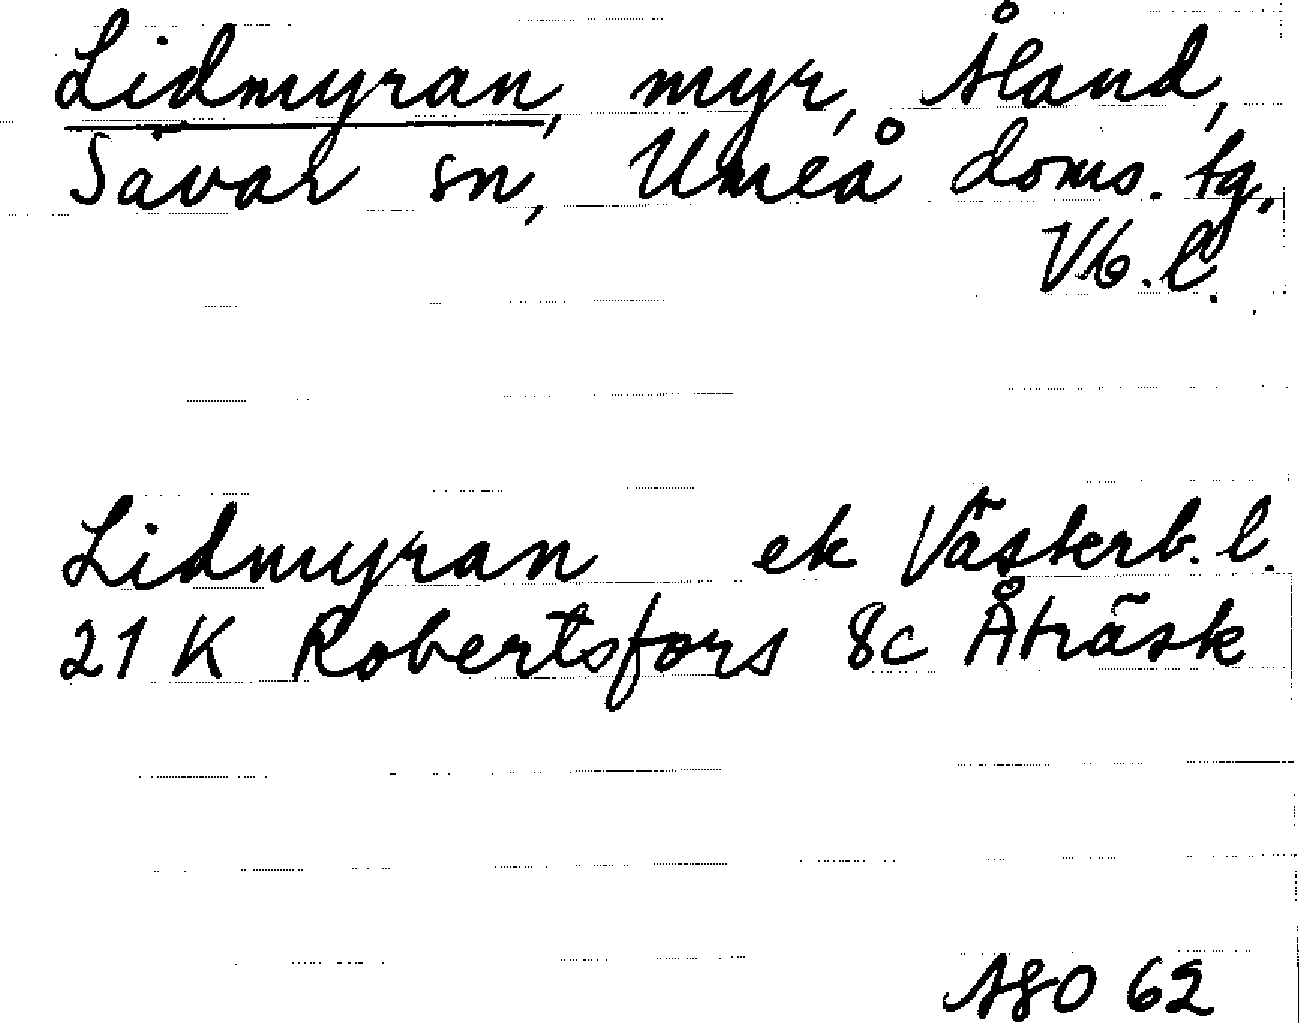 Lidmyran, myr, Åland,
Sävar sn, Umeå doms. tg,
Vb. l.
Lidmyran ek Västerb. l.
21 K Robertsfors 8c Åträsk
ASO 62